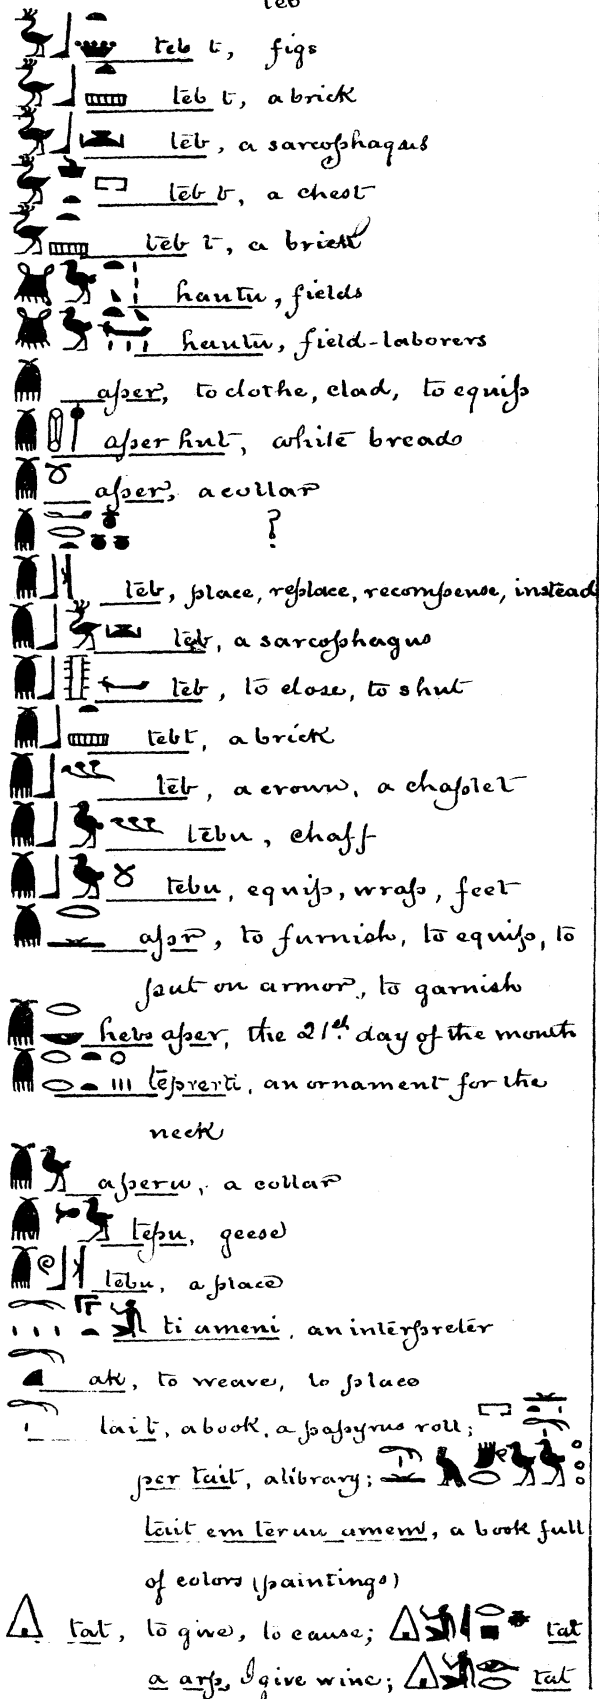 teb
teb t, figs
teb t, a brick
teb, a sarcophagus
teb t, a chest
teb t, a brick
hautu, fields
hautu, field-laborers
aper, to clothe, clad, to equip
aper hut, white bread
aper, a collar
?
teb, place, replace, recompense, instead
teb, a sarcophagus
teb, to close, to shut
tebt, a brick
teb, a crown, a chaplet
tebu, chaff
tebu, equip, wrap, feet
apr, to furnish, to equip, to
put on armor, to garnish
hebs aper, the 21st day of the month
teprerti, an ornament for the
neck
aperu, a collar
tepu, geese
tebu, a place
ti ameni, an interpreter
ak, to weave, to place
tait, a book, a papyrus roll;
per tait, a library;
tait em teruu amem, a book full
of colors (paintings)
tat, to give, to cause; tat
a arp, I give wine; tat